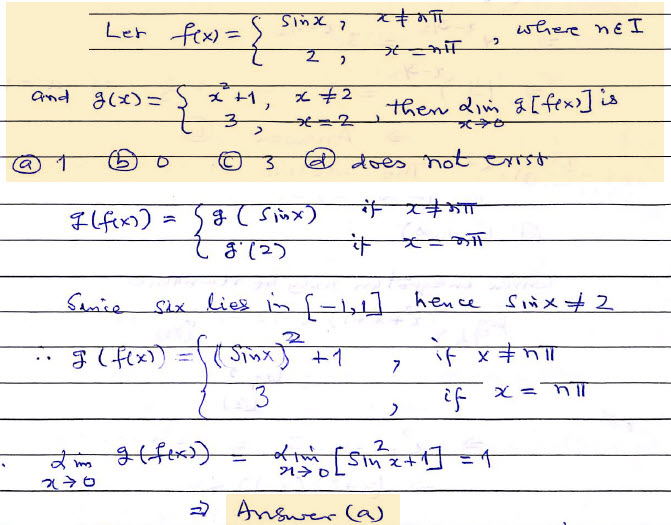 Let f(x) = { sinx, x ≠ nπ
2, x = nπ , where n∈I
and g(x) = { x²+1, x ≠ 2
3, x = 2 , then lim x→0 g[f(x)] is
(a) 1 (b) 0 (c) 3 (d) does not exist
g(f(x)) = { g(sinx) if x ≠ nπ
g(2) if x = nπ
Since six lies in [-1,1] hence sinx ≠ 2
∴ g(f(x)) = { (sinx)² + 1 , if x ≠ nπ
3 , if x = nπ
lim x→0 g(f(x)) = lim x→0 [sin²x+1] = 1
⇒ Answer (a)